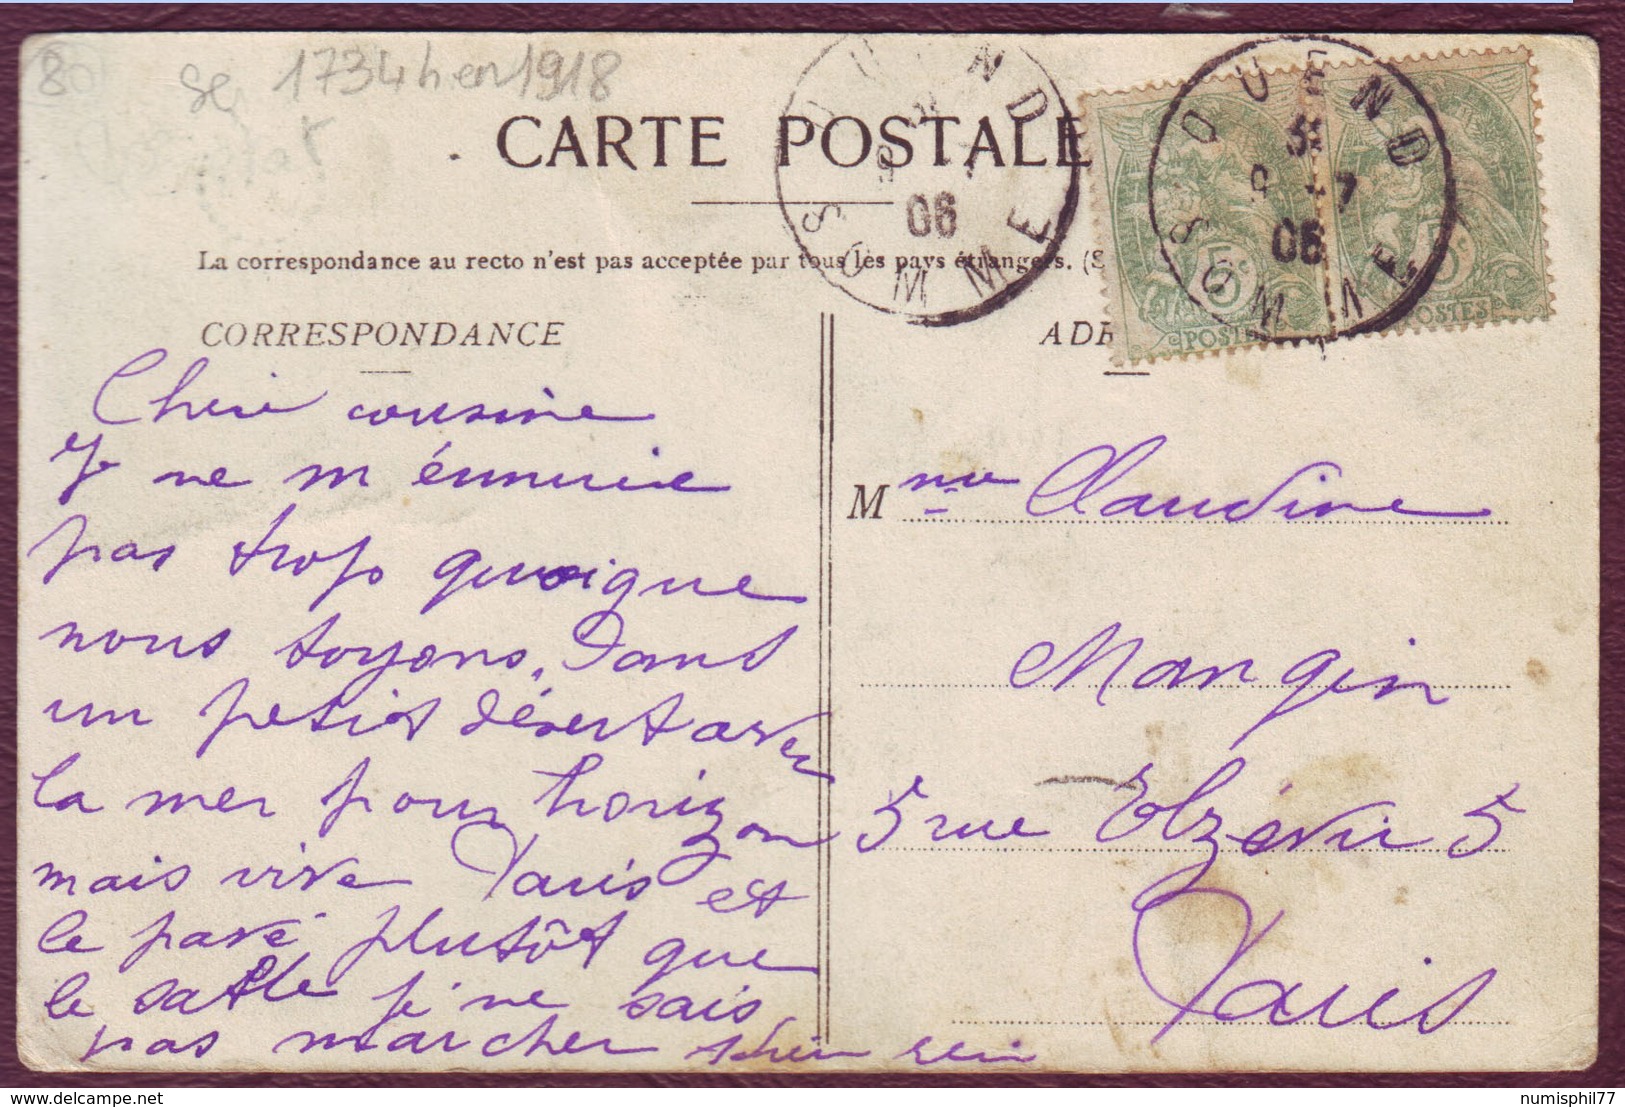 80
1734 h en 1918
CARTE POSTALE
La correspondance au recto n'est pas acceptée par tous les pays étrangers. (S
CORRESPONDANCE
ADR
QUEND
SOMME
06
QUEND
3E
9 -7
06
SOMME
5c
POSTES
5c
POSTES
Cherie cousine
Je ne m énnuie
pas trop quoique
nous soyons, dans
un petit désert avec
la mer pour horizon
mais vive Paris et
le pavé plutôt que
le sable je ne sais
pas marcher
Mme Claudine
Mangin
5 rue Elzévir 5
Paris
www.delcampe.net
numisphil77